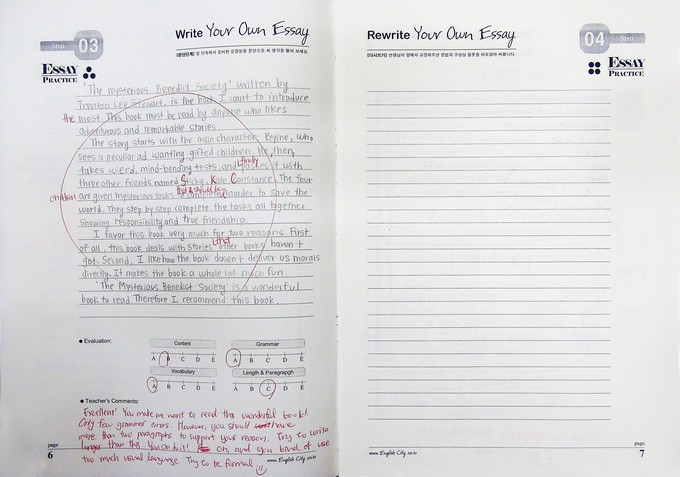 Step 03
Write Your Own Essay
ESSAY
PRACTICE
'The mysterious Benedict Society' written by
Trenton Lee Stewart, is the book I want to introduce
the most. This book must be read by anyone who likes
adventurous and remarkable stories.
The story starts with the main character, Reynie, who
sees a peculiar ad wanting gifted children. He, then,
takes wierd, mind-bending tests, and finally passes it with
three other friends named Sticky, Kate, Constance. The four
children are given mysterious tasks to complete in order to save the
world. They step by step complete the tasks all together
showing responsibility and true friendship.
I favor this book very much for two reasons. First
of all, this book deals with stories that other books haven't
got. Second, I like how the book dosen't deliver us morals
directly. It makes the book a whole lot much fun.
'The Mysterious Benedict Society' is a wonderful
book to read. Therefore I recommend this book.
● Evaluation:
Content
A B C D E
Grammar
A B C D E
Vocabulary
A B C D E
Length & Paragrapgh
A B C D E
● Teacher's Comments:
Excellent! You make me want to read this wonderful book!
Only few grammar errors. However, you should have
more than two paragraphs to support your reasons. Try to write
longer than this. You can do it! Oh, and you kind of use
too much usual language. Try to be formal
page
6
www.English City.co.kr
Rewrite Your Own Essay
04 Step
ESSAY
PRACTICE
www.English City.co.kr
page
7